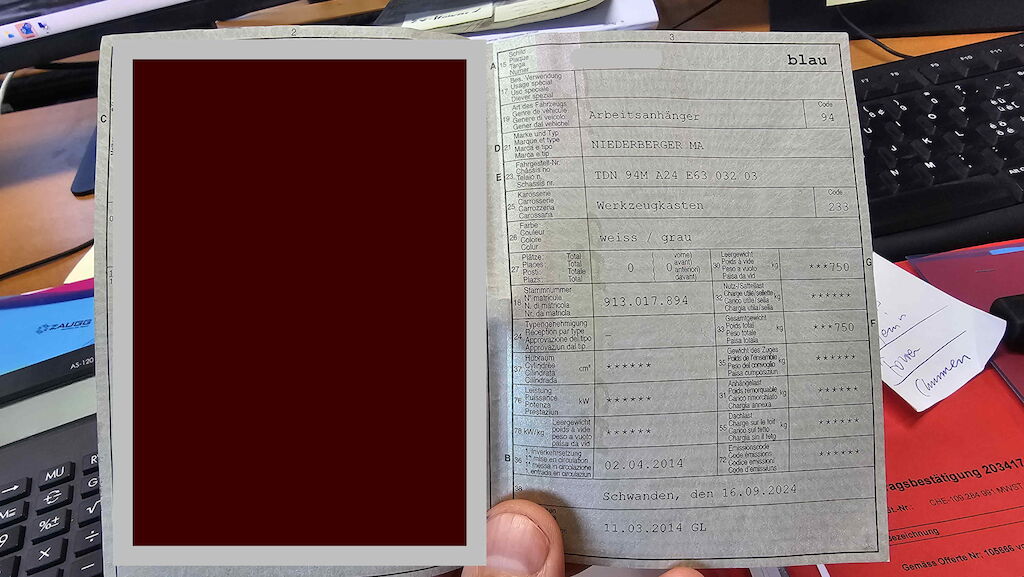 2
3
A 15 Schild
Plaque
Targa
Numer
blau
17 Bes. Verwendung
Usage spécial
Uso speciale
Diever spezial
C
19 Art des Fahrzeugs
Genre de véhicule
Genere di veicolo
Gener dal vehichel
Arbeitsanhänger
Code
94
D 21 Marke und Typ
Marque et type
Marca e tipo
Marca e tip
NIEDERBERGER MA
E 23 Fahrgestell-Nr.
Châssis no
Telaio n.
Schassis nr.
TDN 94M A24 E63 032 03
25 Karosserie
Carrosserie
Carrozzeria
Carossaria
Werkzeugkasten
Code
233
26 Farbe
Couleur
Colore
Colur
weiss / grau
27 Plätze: Total
Places: Total
Posti: Totale
Plazs: Total
0
( vorne)
avant)
0 anteriori)
davant)
30 Leergewicht
Poids à vide
Peso a vuoto
Paisa da vid
kg
***750
G
18 Stammnummer
N° matricule
N. di matricola
Nr. da matricla
913.017.894
32 Nutz-/Sattellast
Charge utile/sellette
Carico utile/sella
Chargia utila/sella
kg
******
24 Typengenehmigung
Réception par type
Approvazione del tipo
Approvaziun dal tip
–
33 Gesamtgewicht
Poids total
Peso totale
Paisa totala
kg
***750
F
37 Hubraum
Cylindrée
Cilindrata
Cilindrada
cm³
******
35 Gewicht des Zuges
Poids de l'ensemble
Peso del convoglio
Paisa cumposiziun
kg
******
76 Leistung
Puissance
Potenza
Prestaziun
kW
******
31 Anhängelast
Poids remorquable
Carico rimorchiato
Chargia annexa
kg
******
78 kW/kg Leergewicht
poids à vide
peso a vuoto
paisa da vid
******
55 Dachlast
Charge sur le toit
Carico sul tetto
Chargia sin il tetg
kg
******
B 36 1. Inverkehrsetzung
1re mise en circulation
1a messa in circolazione
1. entrada en circulaziun
02.04.2014
72 Emissionscode
Code émissions
Codice emissioni
Code d'emissiuns
******
38
Schwanden, den 16.09.2024
11.03.2014 GL
ZAUGG
AS-120
MU
M=
%±
√
X
÷
9
–
F7
F8
F9
F10
F11
J
K
L
N
M
Alt G
agsbestätigung 203417
CHE-109.284.991 MWST
ezeichnung
Gemäss Offerte Nr: 105866 v